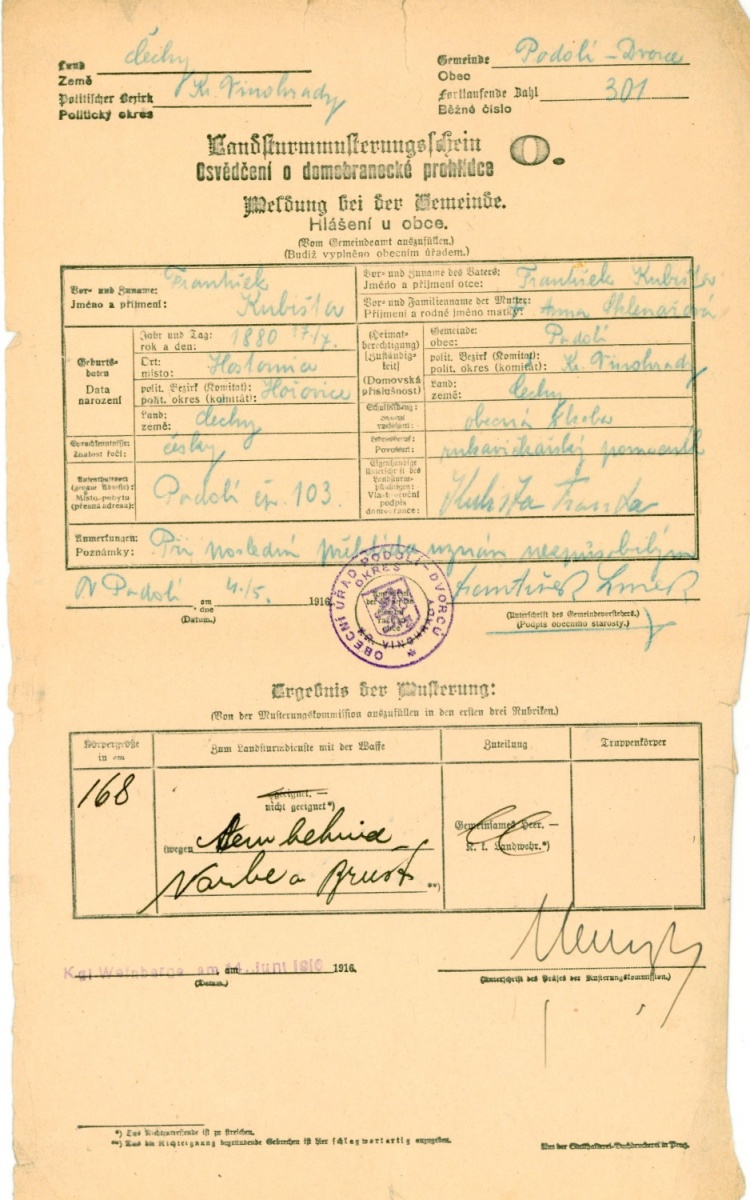 Land Čechy
Země
Politischer Bezirk Kr. Vinohrady
Politický okres
Gemeinde Podolí-Dvorce
Obec
Fortlaufende Zahl 301
Běžné číslo
Landsturmmusterungsschein O.
Osvědčení o domobranecké prohlídce
Meldung bei der Gemeinde.
Hlášení u obce.
(Vom Gemeindeamt auszufüllen.)
(Budiž vyplněno obecním úřadem.)
Vor- und Zuname: František
Jméno a příjmení: Kubišta
Vor- und Zuname des Vaters: František Kubišta
Jméno a příjmení otce:
Vor- und Familienname der Mutter: Anna Sklenářová
Příjmení a rodné jméno matky:
Geburts-
daten
Data
narození
Jahr und Tag: 1880 17/7.
rok a den:
Ort: Hostomice
místo:
polit. Bezirk (Komitat): Hořovice
polit. okres (komitát):
Land: Čechy
země:
(Heimat-
berechtigung)
(Zuständig-
keit)
(Domovská
příslušnost)
Gemeinde: Podolí
obec:
polit. Bezirk (Komitat): Kr. Vinohrady
polit. okres (komitát):
Land: Čechy
země:
Sprachkenntnisse: česky
Znalost řečí:
Schulbildung: obecná škola
vzdělání:
Povolání: rukavičkářský pomocník
Aufenthaltsort
(genaue Adresse):
Místo pobytu
(přesná adresa):
Podolí čp. 103.
Eigenhändige
Unterschrift des
Landsturm-
pflichtigen:
Vlastnoruční
podpis
domobrance:
Kubišta Franta
Anmerkungen:
Poznámky: Při poslední přehlídce uznán nespůsobilým
V Podolí am 4./5. 1916
dne
(Datum.)
OBECNÍ ÚŘAD PODOLÍ-DVORCŮ
OKRES
KR. VINOHRADY
František
(Unterschrift des Gemeindevorstehers.)
(Podpis obecního starosty.)
Ergebnis der Musterung:
(Von der Musterungskommission auszufüllen in den ersten drei Rubriken.)
Körpergröße
in cm
Zum Landsturmdienste mit der Waffe
Zuteilung
Truppenkörper
168
geeignet. —
nicht geeignet*)
(wegen
Brust **)
Gemeinsames Heer. —
K. k. Landwehr.*)
Kgl Weinberge am 14. Juni 1916 am 1916.
(Datum.)
(Unterschrift des Präses der Musterungskommission.)
*) Das Nichtzutreffende ist zu streichen.
**) Das die Nichteignung begründende Gebrechen ist hier schlagwortartig anzugeben.
Aus der Statthalterei-Buchdruckerei in Prag.